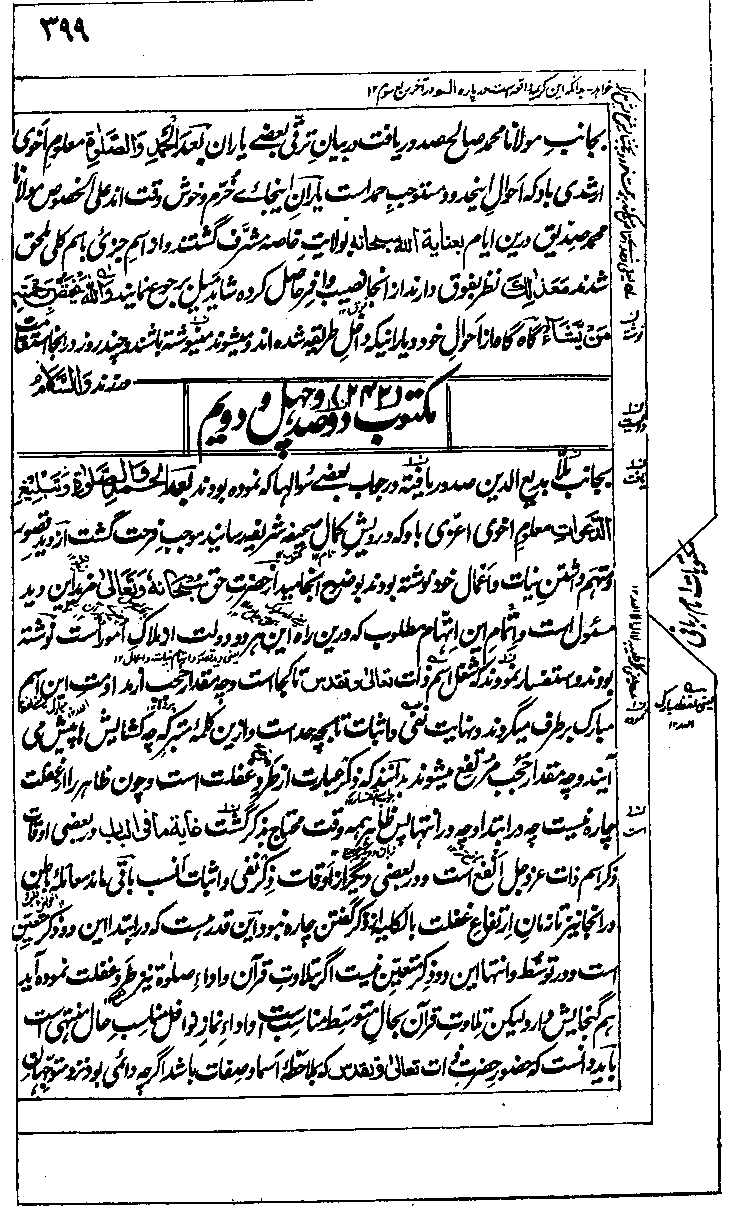 ۳۹۹
بجانب مولانا محمد صالح صدور یافت در بیان ترقی بعضے یاران بعد الحمد والصلوة معلوم اخوی
ارشدی باد که احوال اینحدود مستوجب حمد است یاران اینجائے خرم و خوش وقت اند علی الخصوص مولانا
محمد صدیق درین ایام بعنایة الله سبحانه بولایت خاصه مشرف گشتند و از اسم جزئی باسم کلی ملحق
شدند مع ذلك نظر بفوق دارند از انجا نصیب وافر حاصل کرده شاید میل برجوع نمایند والله یختص برحمته
من یشاء گاه گاه ما از احوال خود و یارانیکه داخل طریقه شده اند و میشوند مینوشته باشند و چند روز در انجا استقامت
ورزند والسلام
مکتوب دو صد و چهل و دویم (۲۴۲)
بجانب ملا بدیع الدین صدور یافته در جواب بعضے سؤالها که نموده بودند بعد الحمد والصلوة و تبلیغ
الدعوات معلوم اخوی اعزی باد که درویش کمال صحیفه شریفه رسانید موجب فرحت گشت از دید قصور
و متهم داشتن نیات و اعمال خود نوشته بودند بوضوح انجامید از حضرت حق سبحانه و تعالی مزید این دید
مسئول است و اتمام این اتهام مطلوب که درین راه این هر دو دولت از ملاک امور است نوشته
بودند و استفسار نمودند که شغل اسم ذات تعالی و تقدس تا کجاست و چه مقدار حجب از مداومت این اسم
مبارک برطرف میگردند و نهایت نفی و اثبات تا بچه حد است و ازین کلمه متبرکه چه کشایش پیش می
آیند و چه مقدار حجب مرتفع میشوند بدانند که ذکر عبارت از طرد غفلت است و چون ظاهر را از غفلت
چاره نیست چه در ابتدا و چه در انتها پس ظاهر همه وقت محتاج بذکر گشت غایة ما فی الباب در بعضی اوقات
ذکر اسم ذات عز و جل انفع است و در بعضی دیگر از اوقات ذکر نفی و اثبات انسب باقی ماند معامله باطن
در انجا نیز تا زمان ارتفاع غفلت بالکلیه از ذکر گفتن چاره نبود این قدر هست که در ابتدا این دو ذکر متعین
است و در توسط و انتها این دو ذکر متعین نیست اگر بتلاوت قرآن و اداء صلوة نیز طرد غفلت نموده آید
هم گنجایش دارد لیکن تلاوت قرآن بحال متوسط مناسب است و اداء نماز نوافل مناسب حال منتهی است
باید دانست که حضور حضرت ذات تعالی و تقدس که بملاحظه اسما و صفات باشد اگر چه دائمی بود نزد متوجهان
مکتوبات امام ربانی